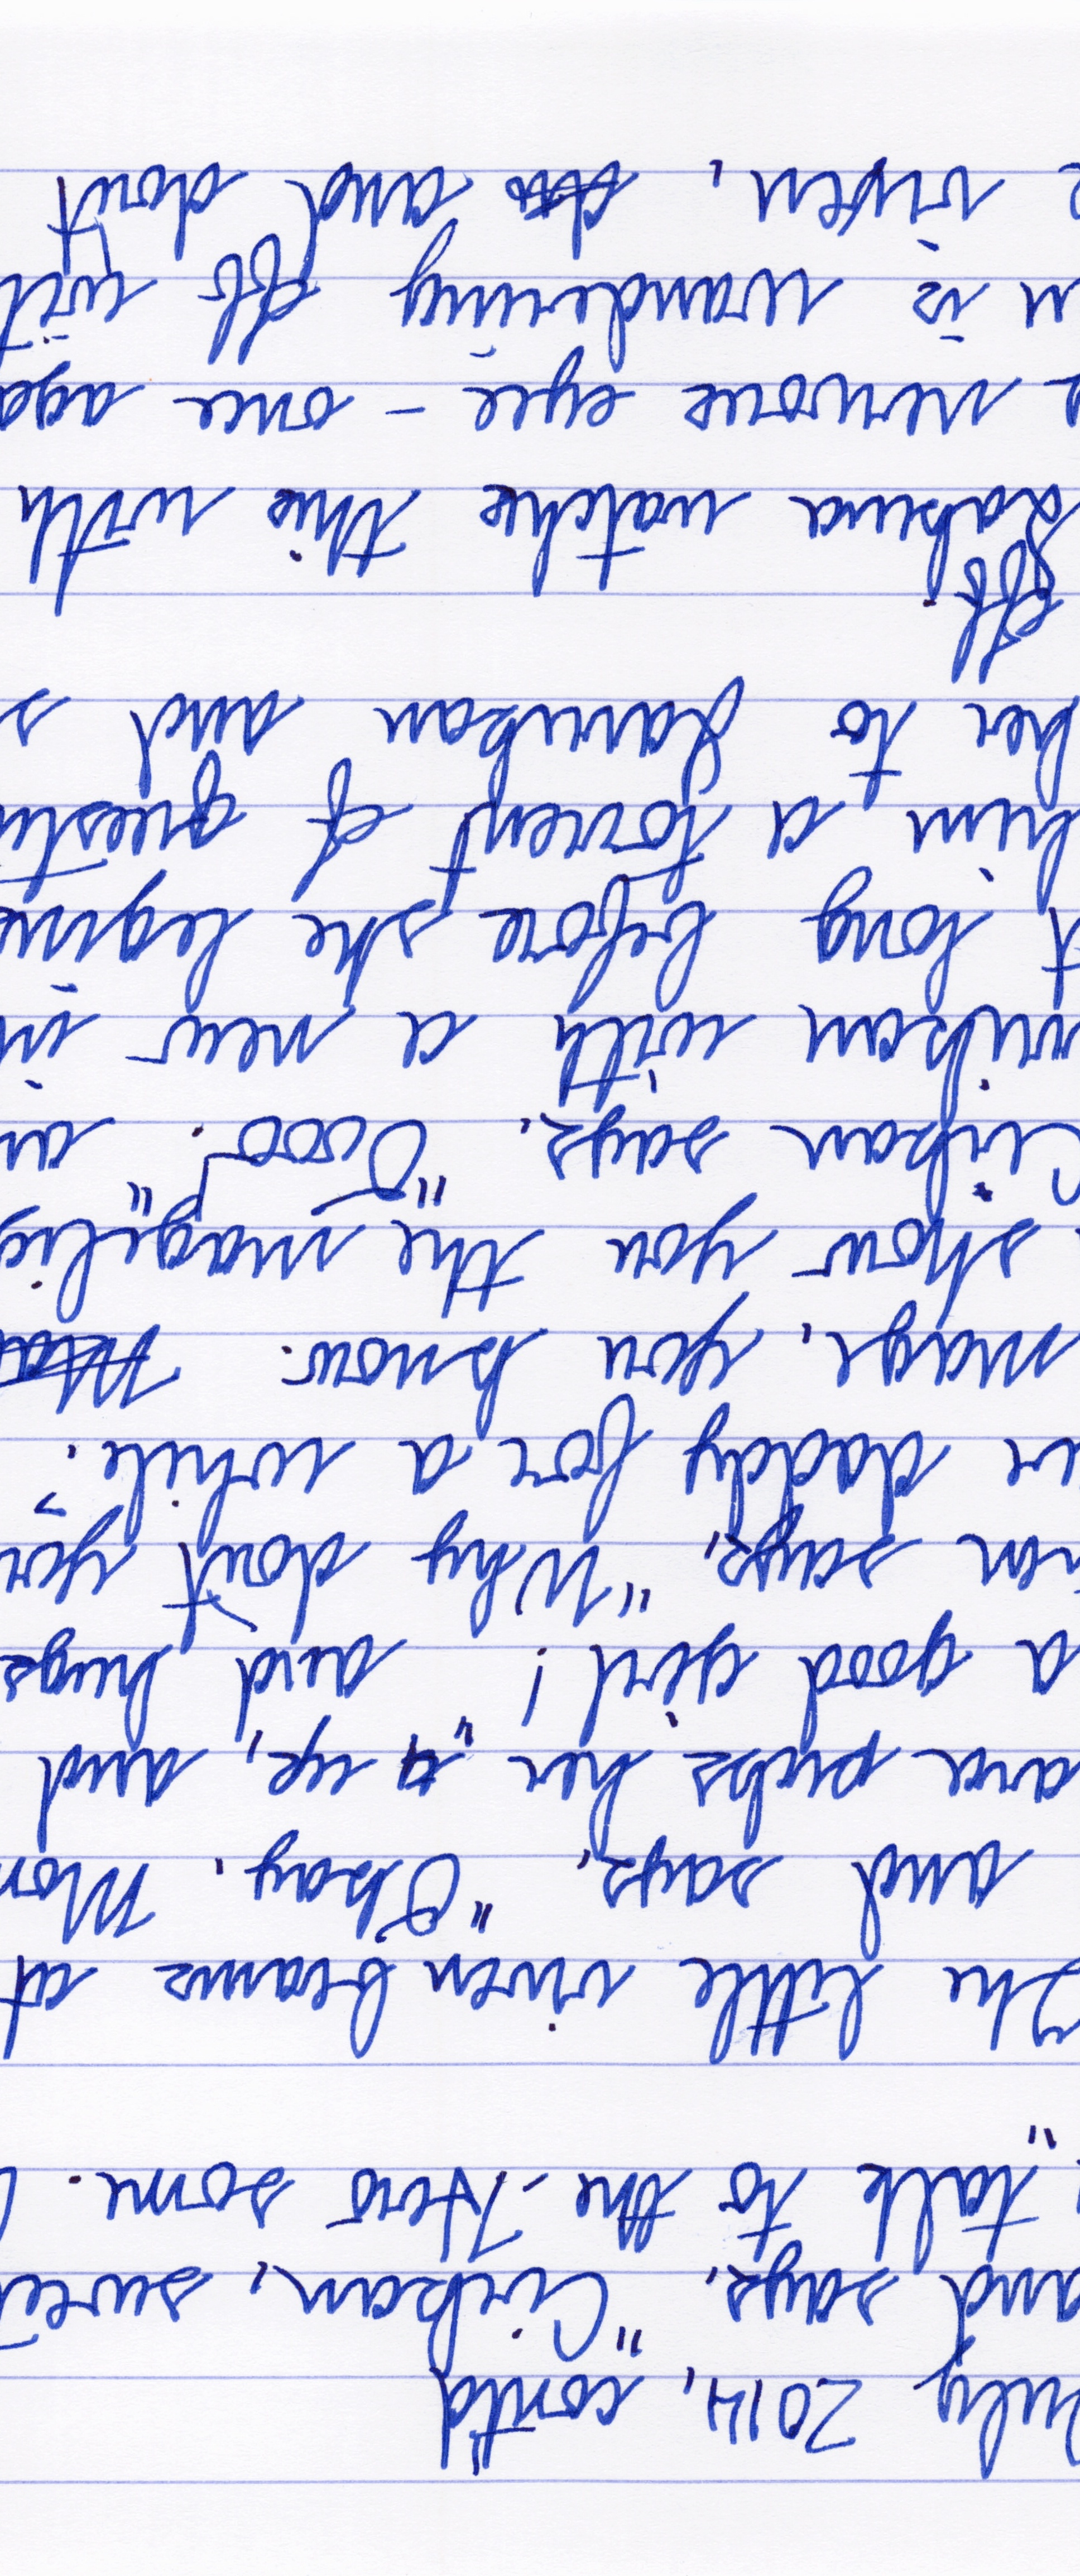 July 2014, cont'd
and says, "Cirkan, sweet
talk to the Hero some.
"
The little rixen beams at
and says, "Okay". Mom
ara picks her up, and
a good girl!" and hugs
kan says, "Why don't you
ur daddy for a while?
mage, you know.
show you the "magelig
Cirikan says, "Oooo". an
arikan with a new in
t long before she begins
him a torrent of questi
her to and s
off.
watche this with
nervous eye - once aga
n is wandering off wit
e rixen, and don't